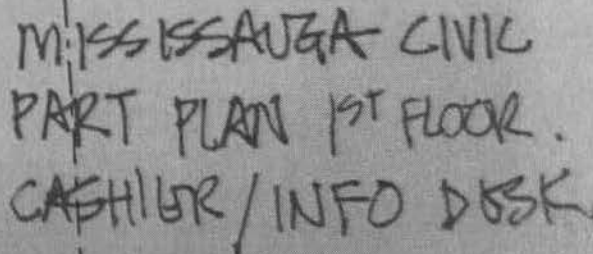 MISSISSAUGA CIVIC
PART PLAN 1ST FLOOR.
CASHIER/INFO DESK